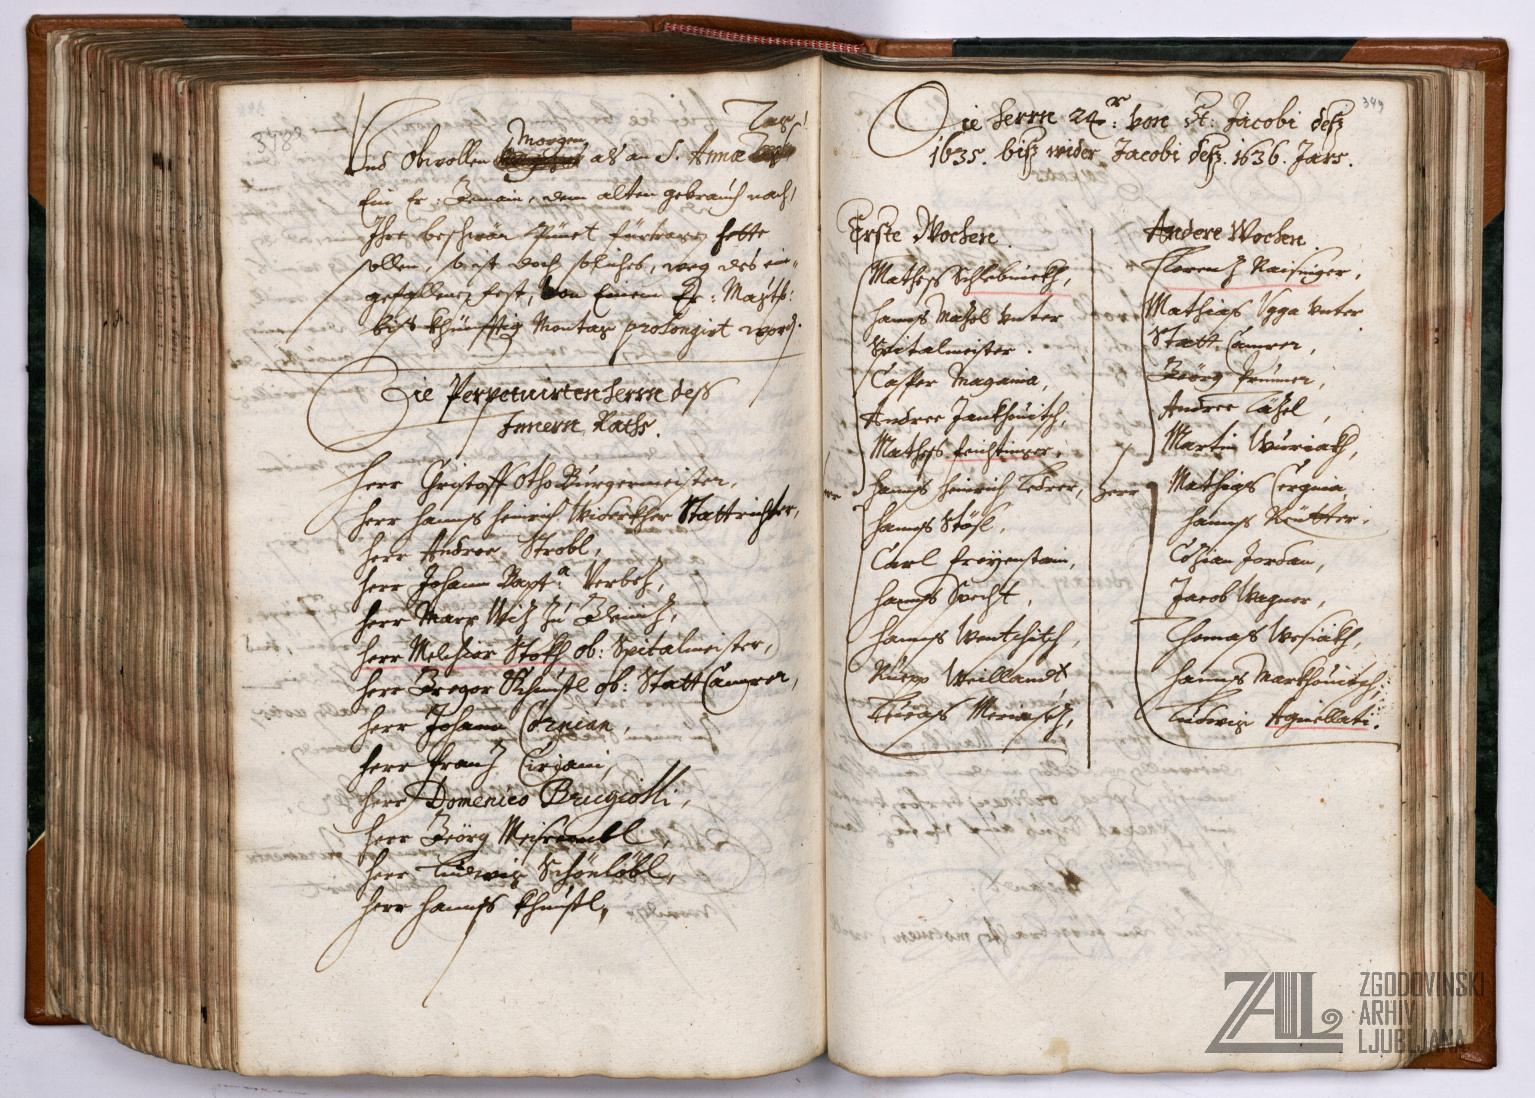 348
Tag
Morgen
Und obwollen als an S. Annæ
Ein Er: Gemain, dem alten gebrauch nach,
Ihre beschwär
sollen, so ist doch solches, weg des ein-
gefallenen fest, von Einem Er: Magtt:
biss khünfftig Montag prolongirt word.
Die Perpetuirten Herrn dess
Innern Raths.
Herr Christoff Otho Burgermeister,
Herr Hannss Heinrich Widerkher Stattrichter,
Herr Andree Strobl,
Herr Johann Bapt.a Verbetz,
Herr Marx Witz
Herr Melchior Stokh ob: Spitalmeister,
Herr Gregor Khunstl ob: Statt Camrer,
Herr Johann Cörnian,
Herr Frantz Cirian,
Herr Domenico Brugiolli,
Herr Geörg
Herr Ludwig Schönlöbl,
Herr Hannss Khunstl,
349
Die Herrn 24.r von St: Jacobi dess
1635. biss wider Jacobi dess 1636. Jars.
Erste Wochen.
Mathess Schlebnickh,
Hannss Mähol Unter
Spitalmeister.
Casper Magaina,
Andree Jankhouitsch,
Mathess Feichtinger,
Hannss Heinrich Ledrer,
Hannss Stössl,
Carl Freyenstain,
Hannss Specht,
Hannss Wentschitsch,
Ruepp Weillandt
Lucass
Andere Wochen.
Florentz Raisinger,
Mathias Ugga Unter
Statt Camrer,
Geörg
Andree Täxel,
Martin Wuriakh,
Herr Mathiass Cergnia,
Hannss Reütter,
Cossian Jordan,
Jacob Wagner,
Thomass Wrsiakh,
Hannss Markhouitsch,
Ludwig Agnellati.
ZAL
ZGODOVINSKI
ARHIV
LJUBLJANA